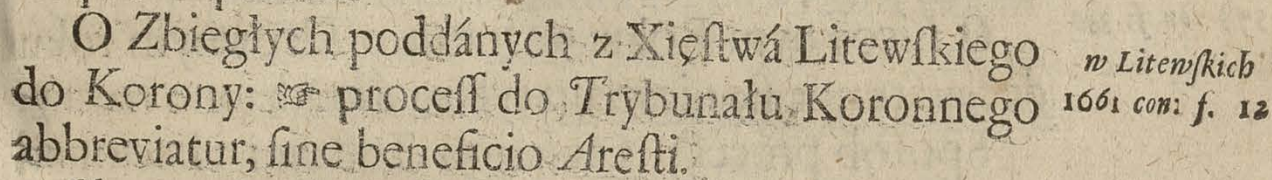 O Zbiegłych poddánych z Xięſtwá Litewſkiego
do Korony: ☞ proceſſ do Trybunału Koronnego
abbreviatur, ſine beneficio Areſti.
w Litewſkich
1661 con: f. 12